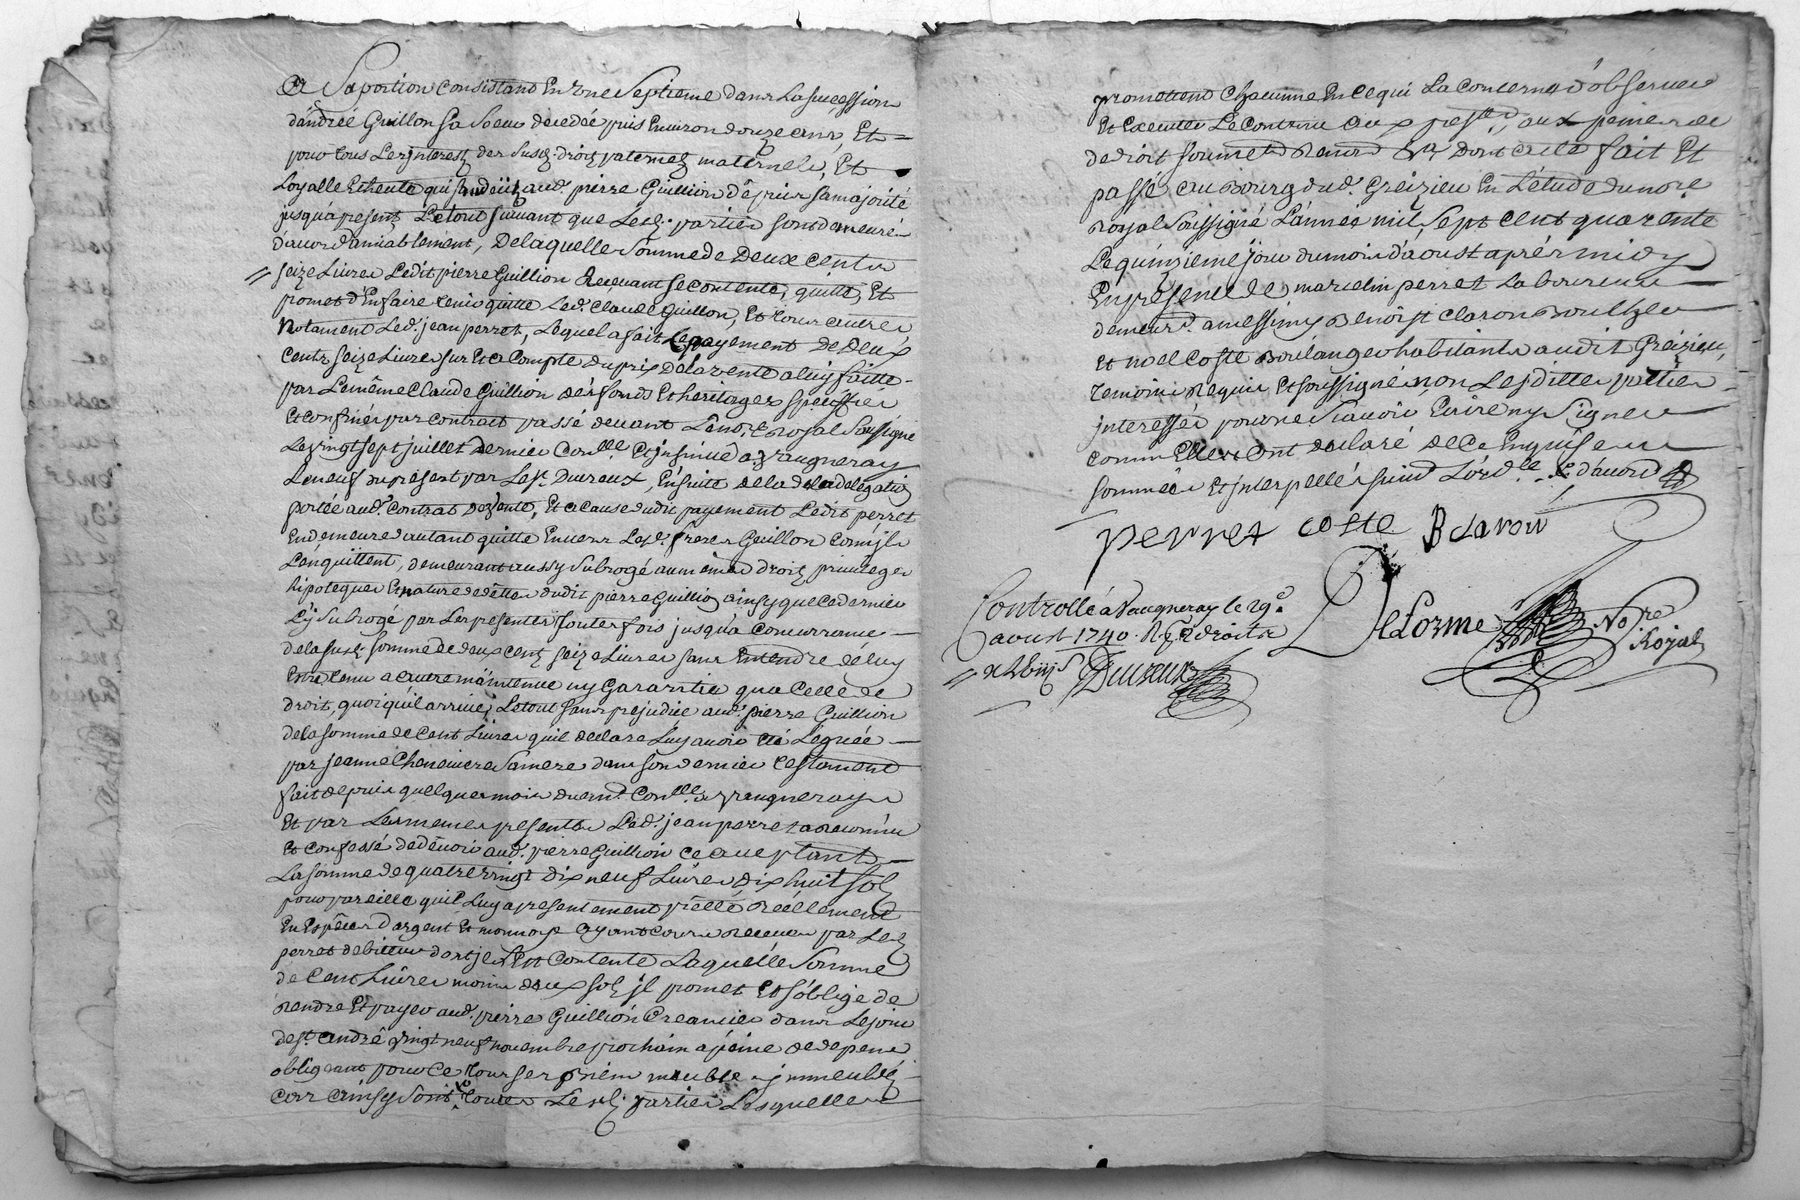 Sa portion Consistant En une Septieme dans La Succession
d'andreé Guillon Sa Soeur decedeé puis Environ douze ans, Et
pour tous Les jnterests des Susd. droits paternels maternels, Et
Loyalle Echeute qui sont deüs aud. pierre Guillion d'épuis sa majorité
jusqu'a present, Le tout suivant que Lesd. parties sont demeurés
d'acord amiablement, De laquelle Somme de Deux cents
seize Livres Ledit pierre Guillion Recevant se contente, quitte, Et
promet d'En faire tenir quitte Led. Claude Guillon, Et tous autres
Notament Led. jean perret, Lequel a fait Le payement de Deux
cents seize Livres sur Et a Compte du prix de la vente a luy faitte
par Le même Claude Guillion dés fonds Et heritages speciffiés
Et confinés par contract passé devant Le no.re Royal Soussigné
Le vingt sept juillet dernier Con.llé Et jnsinüé a vaugneray
Le neuf du present par Le s.r Dureux, En suitte de la delegation
portée aud. Contrat de vente, Et a cause dudit payement Ledit perret
En demeure d'autant quitte Envers Lesd. freres Guillon comm' jls
L'en quittent, demeurant aussy Subrogé au même droits privileges
hipoteques Et nature de dettes dudit pierre Guillion ainsy que ce dernier
L'y Subrogé par Les presentes, toutes fois jusqu'a concurrance
de la susd. somme de deux cents seize Livres sans Entendre de luy
Estre tenu a autre maintenüe ny Garantie qu'a celle de
droit, quoi qu'il arrive, Le tout sans prejudice aud. pierre Guillion
de la somme de Cent Livres qu'il declare Luy avoir été Léguée
par jeanne Chenevier Sa mere dans son dernier testament
fait depuis quelques mois duem.t Con.llé a vaugneray
Et par Les memes presentes Led. jean perret a Reconnu
Et confessé de devoir aud. pierre Guillion ce aceptant
La somme de quatre vingt dix neuf Livres dix huit sols
pour pareille qu'il Luy a presentement prêtté Réellement
En Espéces d'argent Et monnoye ayant cours Receües par Led.
perret debiteur dont jl s'Est Contenté Laquelle Somme
de Cent Livres moins deux sols jl promet Et s'oblige de
Rendre Et payer aud. pierre Guillión Creancier dans Le jour
de s.t andré vingt neuf novembre prochain a peine de depens
obligeant pour ce tous ses biens meubles jmmeubles
car ainsy sont toutes Lesd. parties Lesquelles
promettent Chacunne En ce qui La Concerne d'observer
Et Executer Le Contenu aux pres.tes, aux peines de
de droit soumet.d Renon.d &.a Dont acte fait Et
passé au Bourg dud. Greizieu En L'étude du no.re
Royal Soussigné L'année mil sept cent quarente
Le quinzieme jour du mois d'aoust aprés midy
En présence de marcelin perret Laboureur
demeur.t a messimy Benoist Claron Boucher
Et noel Coste Boulanger habitants audit Greizieu,
temoins Requis Et soussignés, non Lesdittes parties
jnteressés pour ne Sçavoir Ecrire ny Signer
comm' Elles ont declaré de ce Enquises
sommées Et jnterpellés suiv.t L'ord.ce d'acord
perret coste B claron
Controllé a vaugneray le 29.e
aoust 1740. droits
Dureux
Delorme No.re
Royal